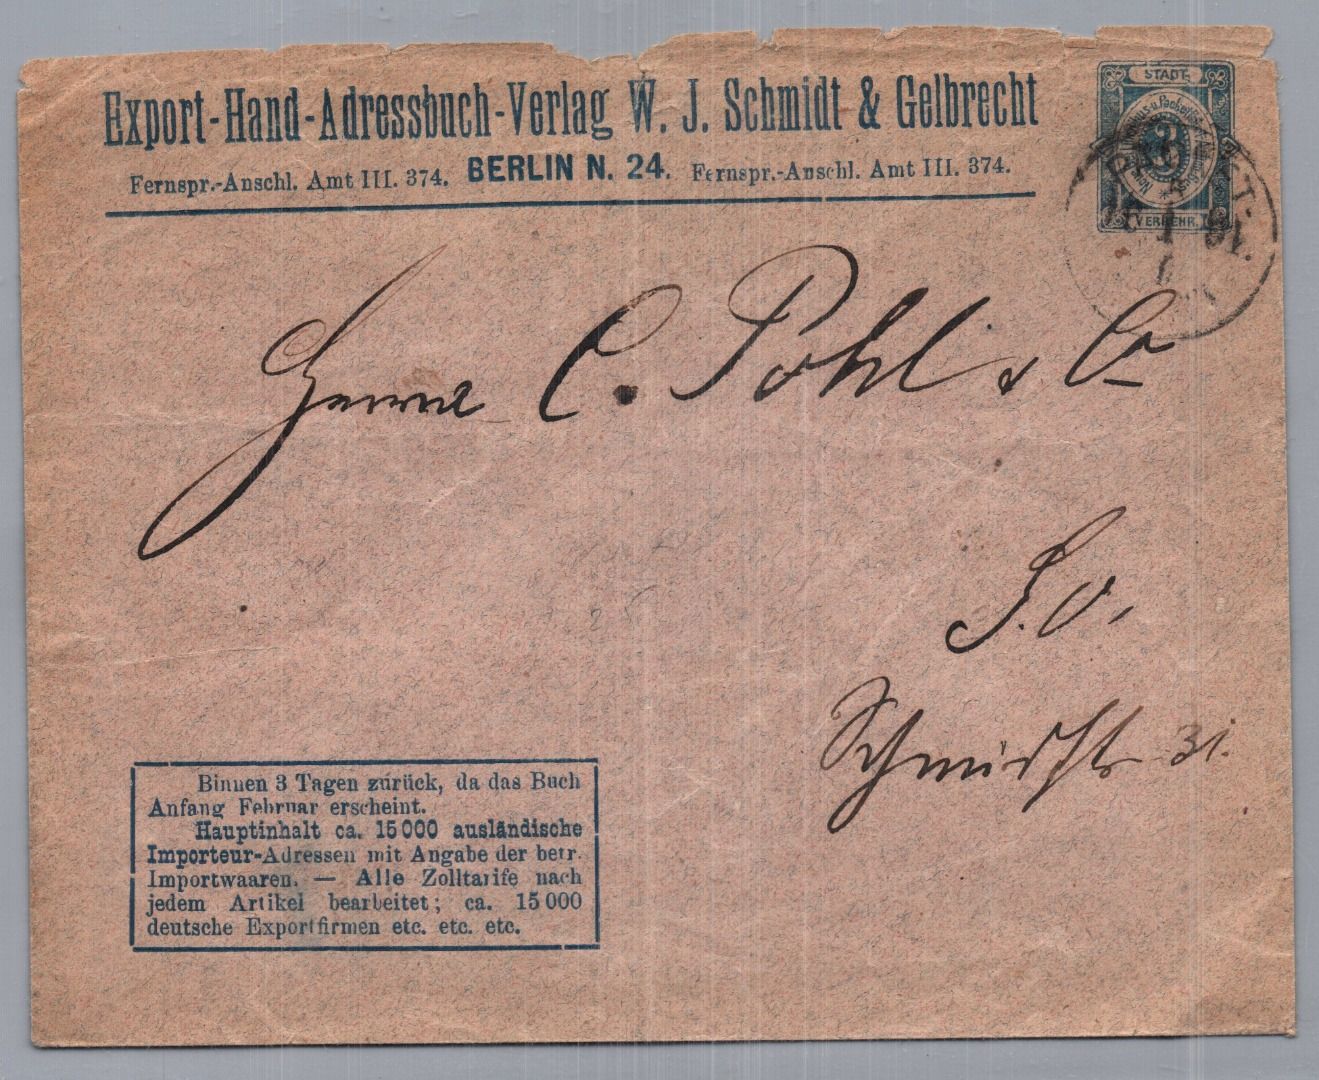 Export-Hand-Adressbuch-Verlag W. J. Schmidt & Gelbrecht
Fernspr.-Anschl. Amt III. 374. BERLIN N. 24. Fernspr.-Anschl. Amt III. 374.
STADT-
VERKEHR.
91.
Herrn C. Pohl & Co
S.O.
Schmidtstr 31.
Binnen 3 Tagen zurück, da das Buch
Anfang Februar erscheint.
Hauptinhalt ca. 15000 ausländische
Importeur-Adressen mit Angabe der betr.
Importwaaren. — Alle Zolltarife nach
jedem Artikel bearbeitet; ca. 15000
deutsche Exportfirmen etc. etc. etc.